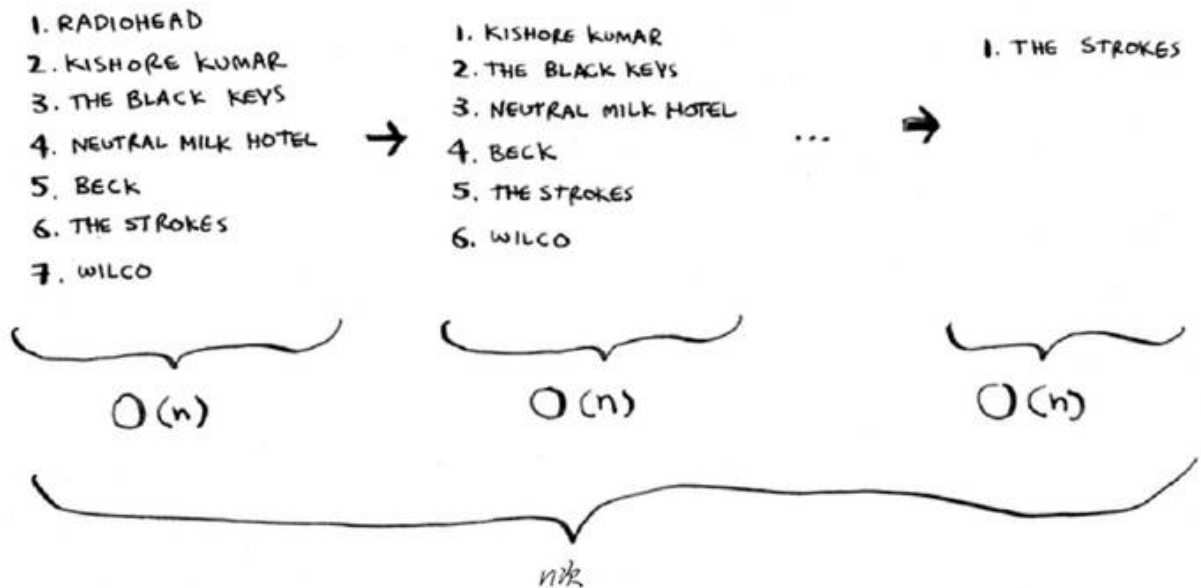 1. RADIOHEAD
2. KISHORE KUMAR
3. THE BLACK KEYS
4. NEUTRAL MILK HOTEL
5. BECK
6. THE STROKES
7. WILCO
→
1. KISHORE KUMAR
2. THE BLACK KEYS
3. NEUTRAL MILK HOTEL
4. BECK
5. THE STROKES
6. WILCO
... →
1. THE STROKES
O(n)
O(n)
O(n)
n次